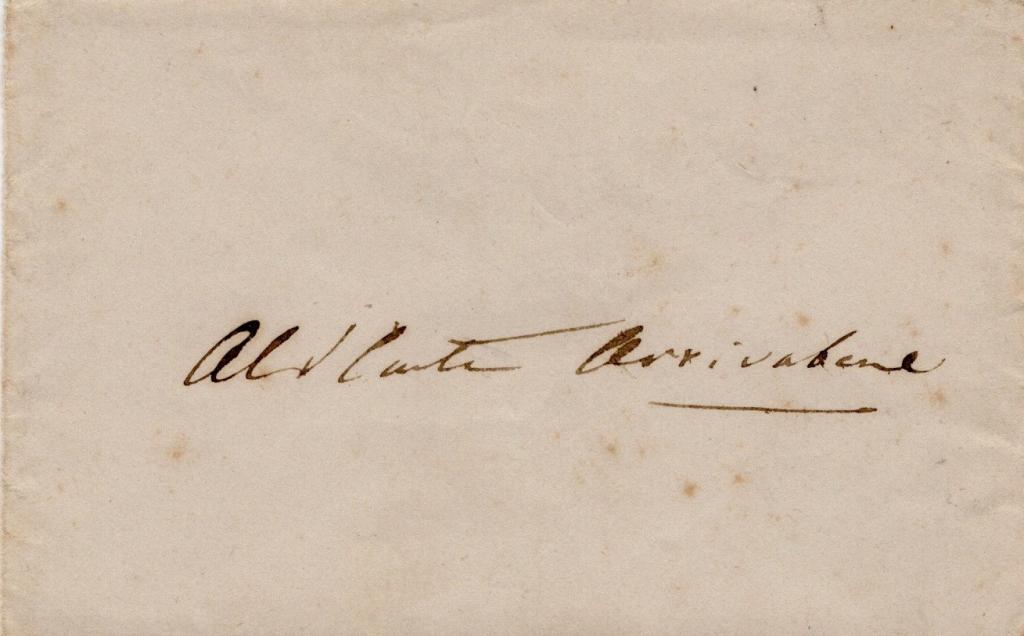 Al Conte Arrivabene